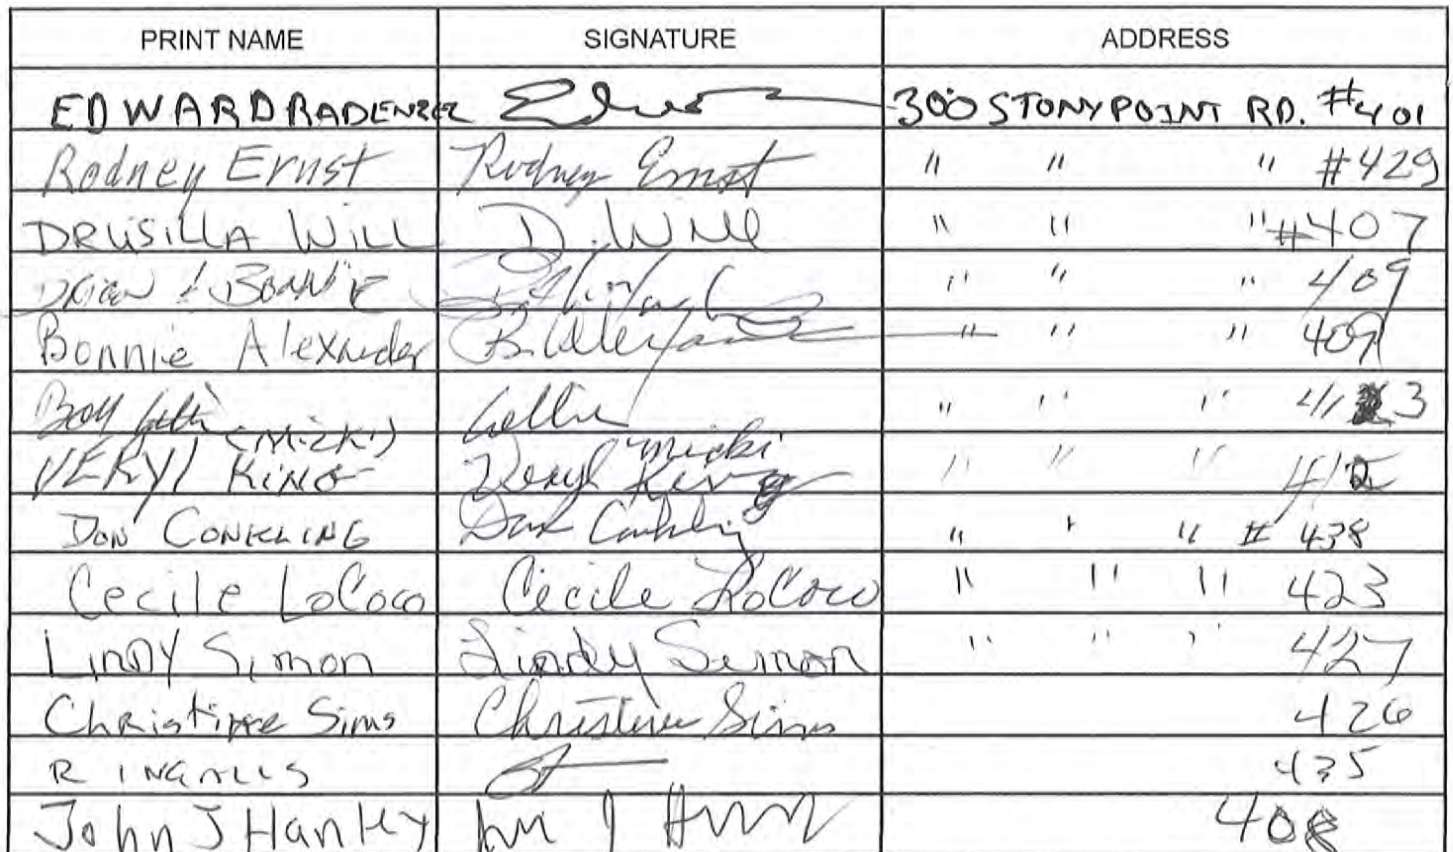 PRINT NAME SIGNATURE ADDRESS
EDWARD RADENZEL 300 STONYPOINT RD. #401
Rodney Ernst Rodney Ernst " " " #429
DRUSILLA WILL D. Will " " " #407
BONNIE " " " 409
Bonnie Alexander B. Alexander " " " 409
" " " 413
(MICKI) Micki
VERYL KING Veryl King " " " 412
DON CONKLING Don Conkling " " " # 438
Cecile LoCoco Cecile LoCoco " " " 423
LINDY Simon Lindy Simon " " " 427
Christine Sims Christine Sims 426
R INGALLS 435
John J Hanley 408